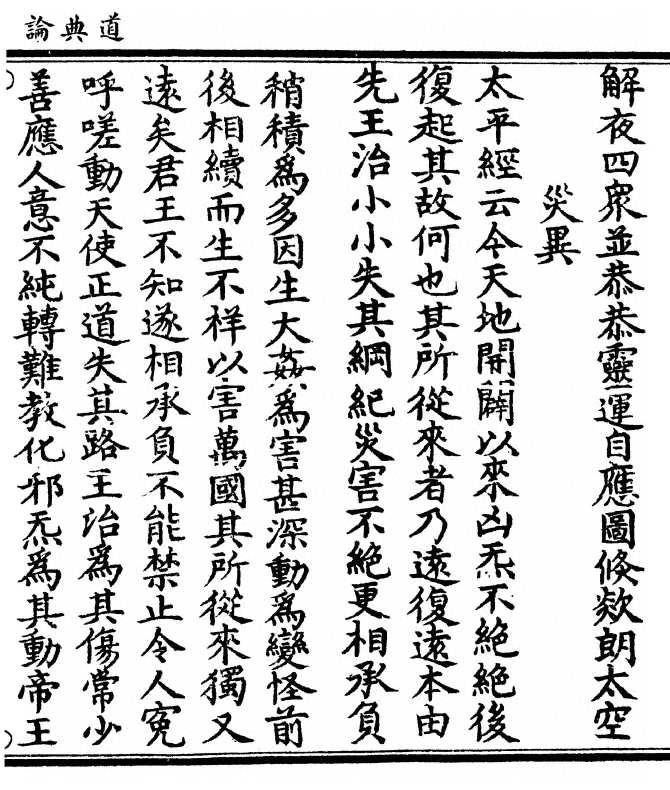 道典論
解夜四衆並恭恭靈運自應圖倏欻朗太空
災異
太平經云今天地開闢以來凶炁不絕絕後
復起其故何也其所從來者乃遠復遠本由
先王治小小失其綱紀災害不絕更相承負
稍積爲多因生大姦爲害甚深動爲變怪前
後相續而生不祥以害萬國其所從來獨又
遠矣君王不知遂相承負不能禁止令人寃
呼嗟動天使正道失其路王治爲其傷常少
善應人意不純轉難教化邪炁爲其動帝王